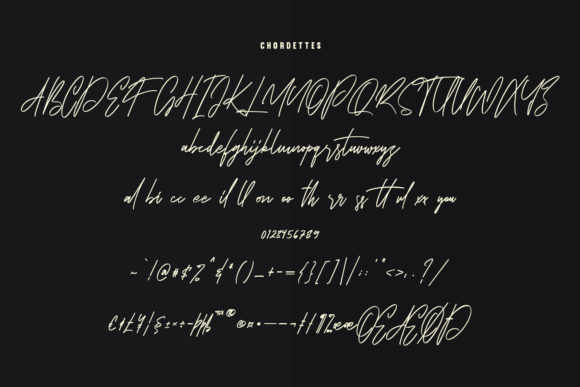 CHORDETTES
ABCDEFGHIJKLMNOPQRSTUVWXYZ
abcdefghijklmnopqrstuvwxyz
al bi cc ee il ll on oo th rr ss tt ul xx you
0123456789
~`!@#$%^&*()_+-={}[]\|/:;'"<>,.?/